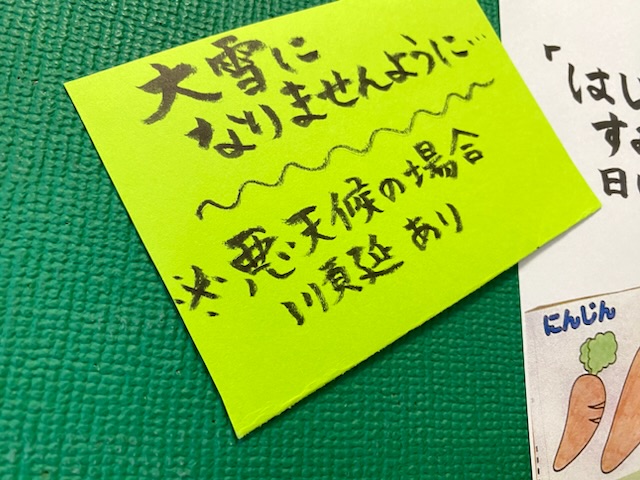 大雪に
なりませんように…
※悪天候の場合
順延あり
「はじ
す
日
にんじん